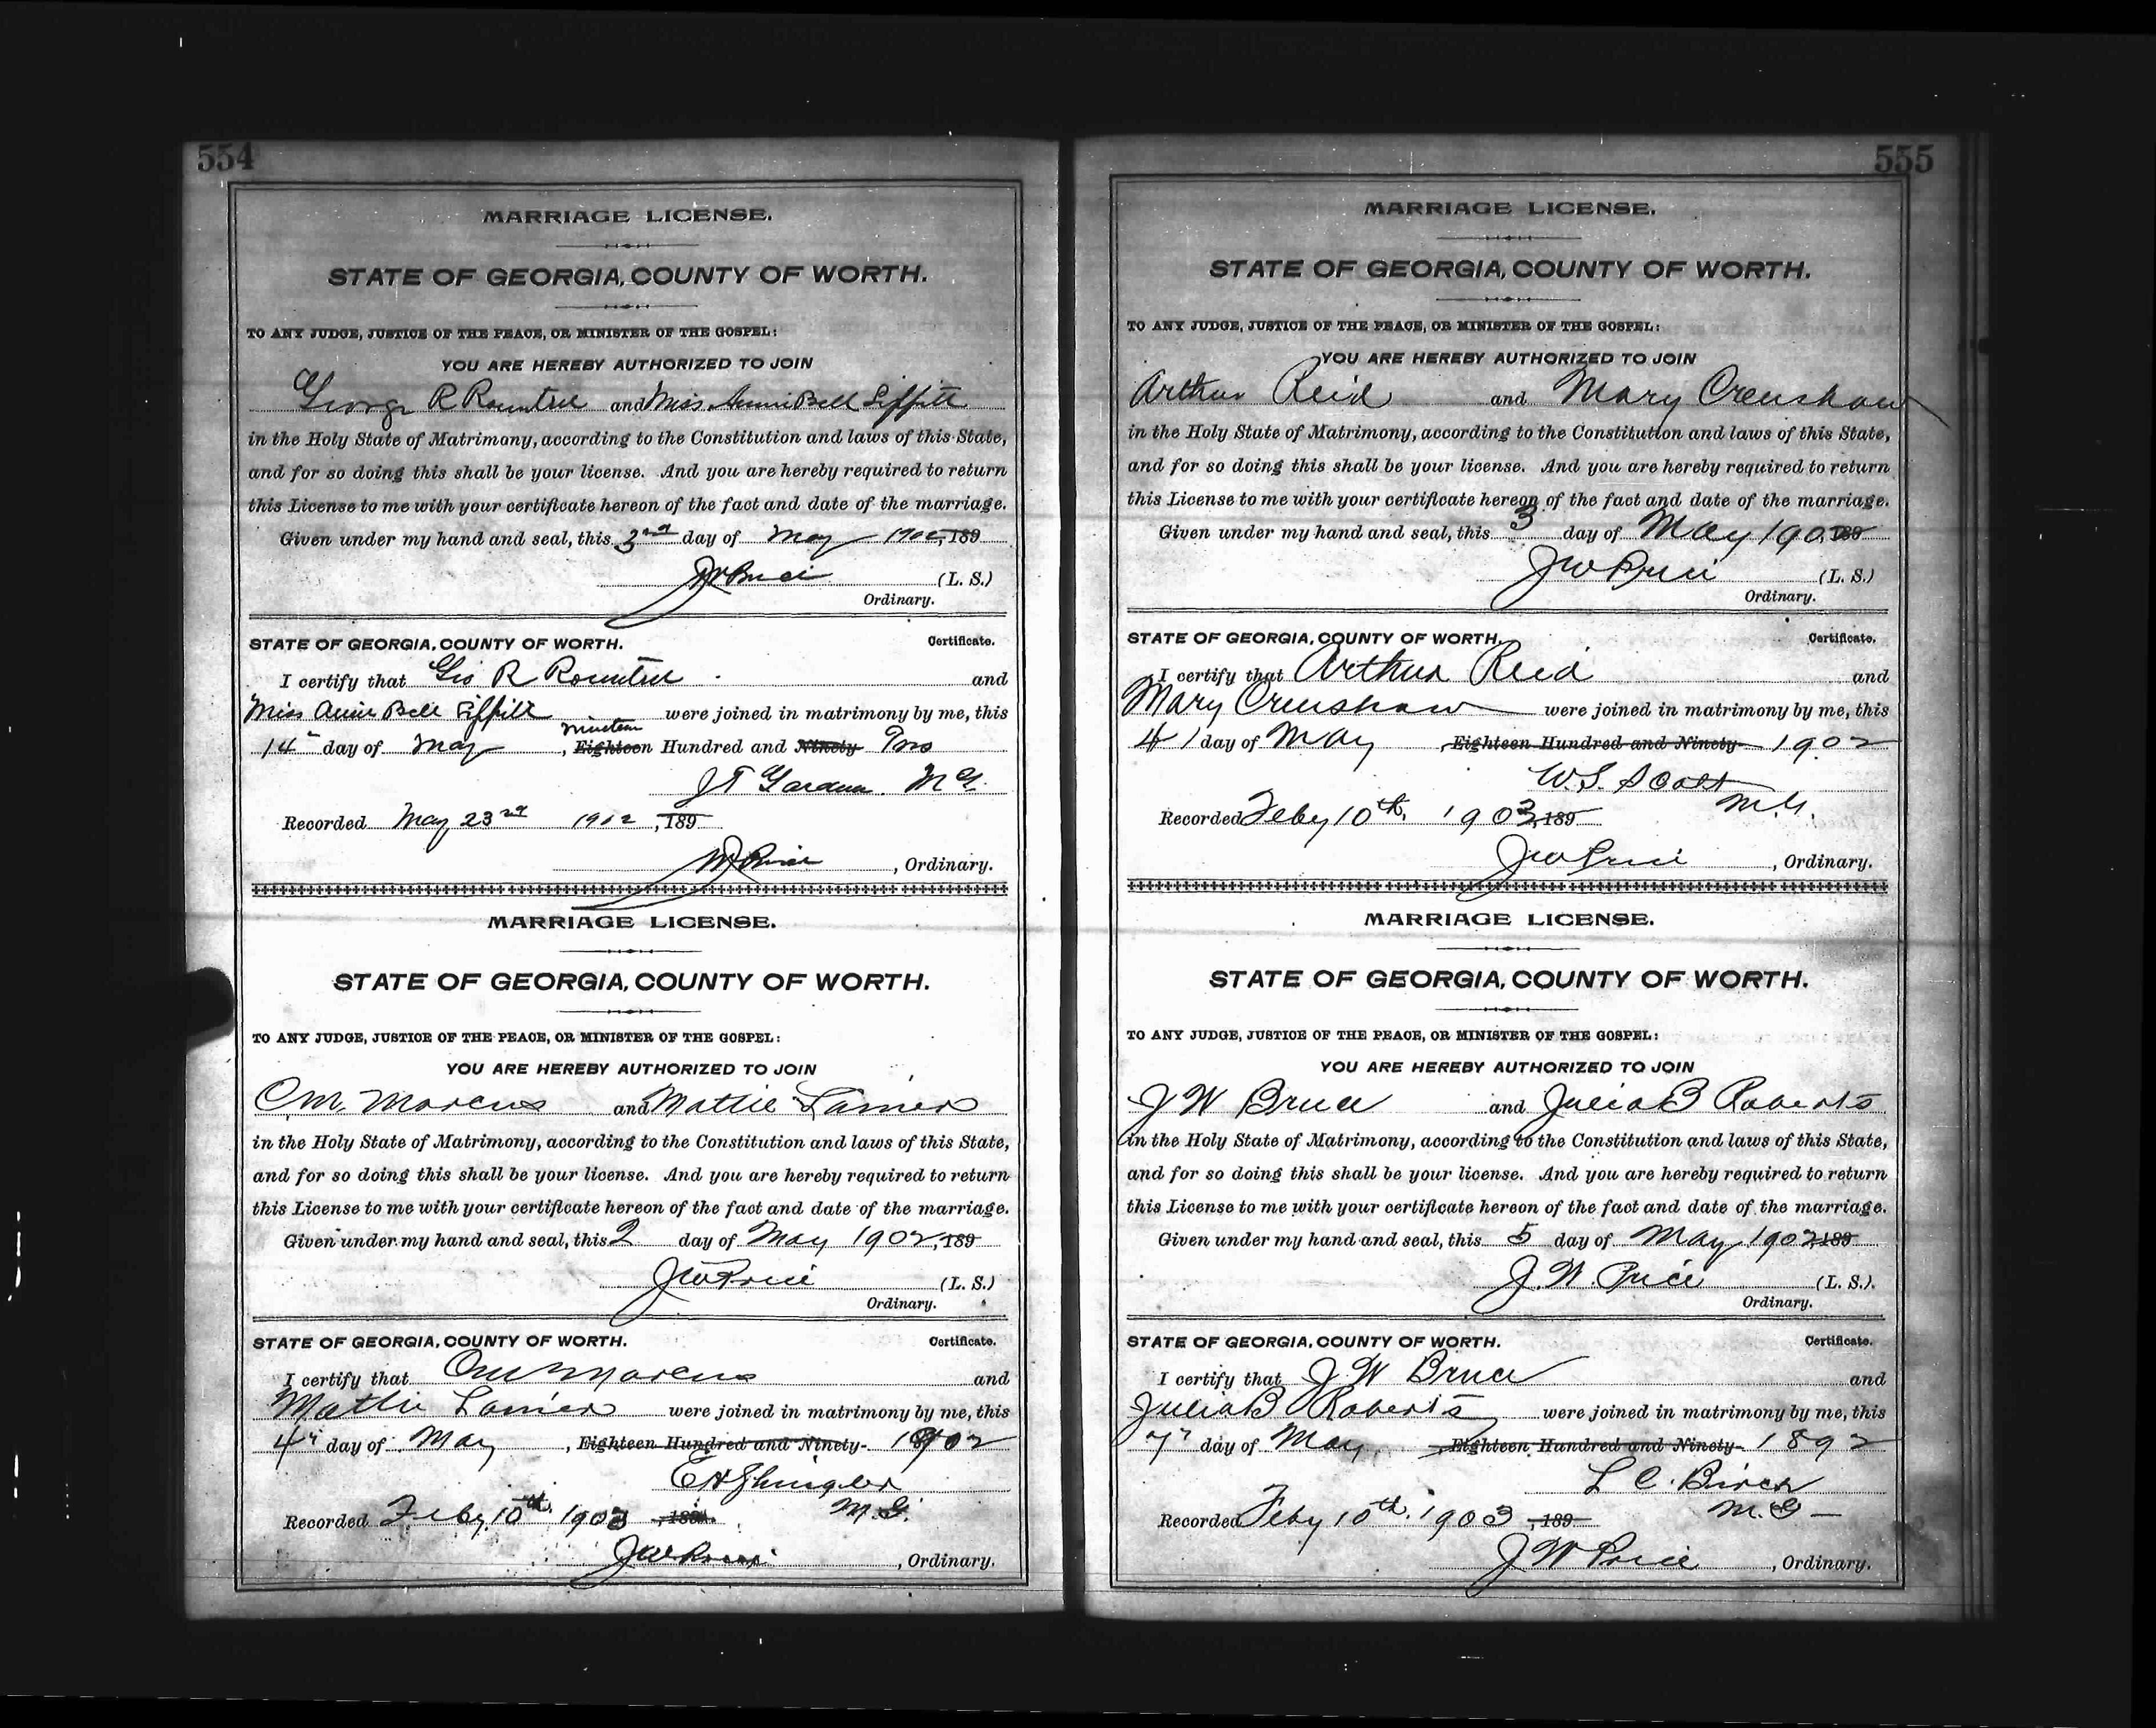 554
MARRIAGE LICENSE.
STATE OF GEORGIA, COUNTY OF WORTH.
TO ANY JUDGE, JUSTICE OF THE PEACE, OR MINISTER OF THE GOSPEL:
YOU ARE HEREBY AUTHORIZED TO JOIN
George R Rountree and Miss Annie Bell
in the Holy State of Matrimony, according to the Constitution and laws of this State,
and for so doing this shall be your license. And you are hereby required to return
this License to me with your certificate hereon of the fact and date of the marriage.
Given under my hand and seal, this 3rd day of May 1902, 189
JW Price (L. S.)
Ordinary.
STATE OF GEORGIA, COUNTY OF WORTH. Certificate.
I certify that Geo R Rountree and
Miss Annie Bell were joined in matrimony by me, this
nineteen
14th day of May, Eighteen Hundred and Ninety Two
J T Gardner M G.
Recorded May 23rd 1902, 189
JW Price, Ordinary.
MARRIAGE LICENSE.
STATE OF GEORGIA, COUNTY OF WORTH.
TO ANY JUDGE, JUSTICE OF THE PEACE, OR MINISTER OF THE GOSPEL:
YOU ARE HEREBY AUTHORIZED TO JOIN
C.M. Marcus and Mattie Lanier
in the Holy State of Matrimony, according to the Constitution and laws of this State,
and for so doing this shall be your license. And you are hereby required to return
this License to me with your certificate hereon of the fact and date of the marriage.
Given under my hand and seal, this 2 day of May 1902, 189
JW Price (L. S.)
Ordinary.
STATE OF GEORGIA, COUNTY OF WORTH. Certificate.
I certify that CM Marcus and
Mattie Lanier were joined in matrimony by me, this
4th day of May, Eighteen Hundred and Ninety- 1902
Shingler
M.G.
Recorded Feby 10th, 1903, 189
JW Price, Ordinary.
555
MARRIAGE LICENSE.
STATE OF GEORGIA, COUNTY OF WORTH.
TO ANY JUDGE, JUSTICE OF THE PEACE, OR MINISTER OF THE GOSPEL:
YOU ARE HEREBY AUTHORIZED TO JOIN
Arthur Reid and Mary Crenshaw
in the Holy State of Matrimony, according to the Constitution and laws of this State,
and for so doing this shall be your license. And you are hereby required to return
this License to me with your certificate hereon of the fact and date of the marriage.
Given under my hand and seal, this 3 day of May 1902, 189
JW Price (L. S.)
Ordinary.
STATE OF GEORGIA, COUNTY OF WORTH. Certificate.
I certify that Arthur Reid and
Mary Crenshaw were joined in matrimony by me, this
4 day of May, Eighteen Hundred and Ninety- 1902
W.S. Scott
M.G.
Recorded Feby 10th, 1903, 189
JW Price, Ordinary.
MARRIAGE LICENSE.
STATE OF GEORGIA, COUNTY OF WORTH.
TO ANY JUDGE, JUSTICE OF THE PEACE, OR MINISTER OF THE GOSPEL:
YOU ARE HEREBY AUTHORIZED TO JOIN
J W Bruce and Julia B Roberts
in the Holy State of Matrimony, according to the Constitution and laws of this State,
and for so doing this shall be your license. And you are hereby required to return
this License to me with your certificate hereon of the fact and date of the marriage.
Given under my hand and seal, this 5 day of May 1902, 189
J. W. Price (L. S.)
Ordinary.
STATE OF GEORGIA, COUNTY OF WORTH. Certificate.
I certify that J W Bruce and
Julia B Roberts were joined in matrimony by me, this
7" day of May, Eighteen Hundred and Ninety- 1892
L C. Birch
M.G -
Recorded Feby 10th. 1903, 189
J W Price, Ordinary.